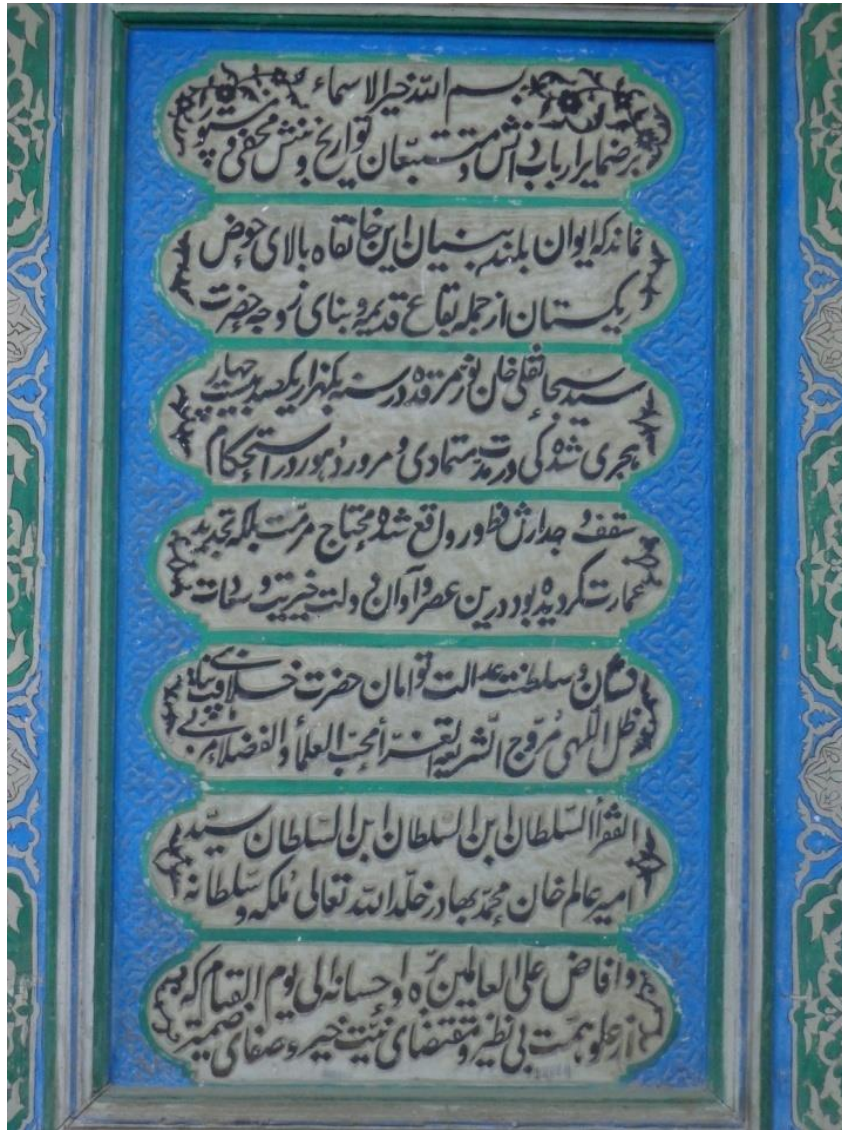 بسم الله خير الاسماء
بر ضماير ارباب دانش و متتبعان تواريخ و بينش مخفى و مستور
نماند كه ايوان بلند بنيان اين خانقاه بالاى حوض
ريكستان از جمله بقاع قديمه و بناى زوجه حضرت
سيد سبحانقلى خان نور مرقده در سنه يكهزار يكصد بيست چهار
هجرى شده كى در مدت متمادى و مرور دهور در استحكام
سقف و جدارش فطور واقع شده محتاج مرمت بلكه تجديد
عمارت گرديده بود درين عصر و آوان دولت خيريت و
نشان و سلطنت عدالت توامان حضرت خلافت پناهى
ظل اللهى مُروّج الشّريعة الغرّا محبّ العلمأ و الفضلا مربى
الفقرأ السّلطان ابن السلطان ابن السّلطان سيّد
امير عالم خان محمّد بهادر خلّد الله تعالى مُلكه و سلطانه
و افاض على العالمين برّه و احسانه الى يوم القيام كه
از علو همّت بى نظير و مقتضاى نيّت خير و صفاى ضمير